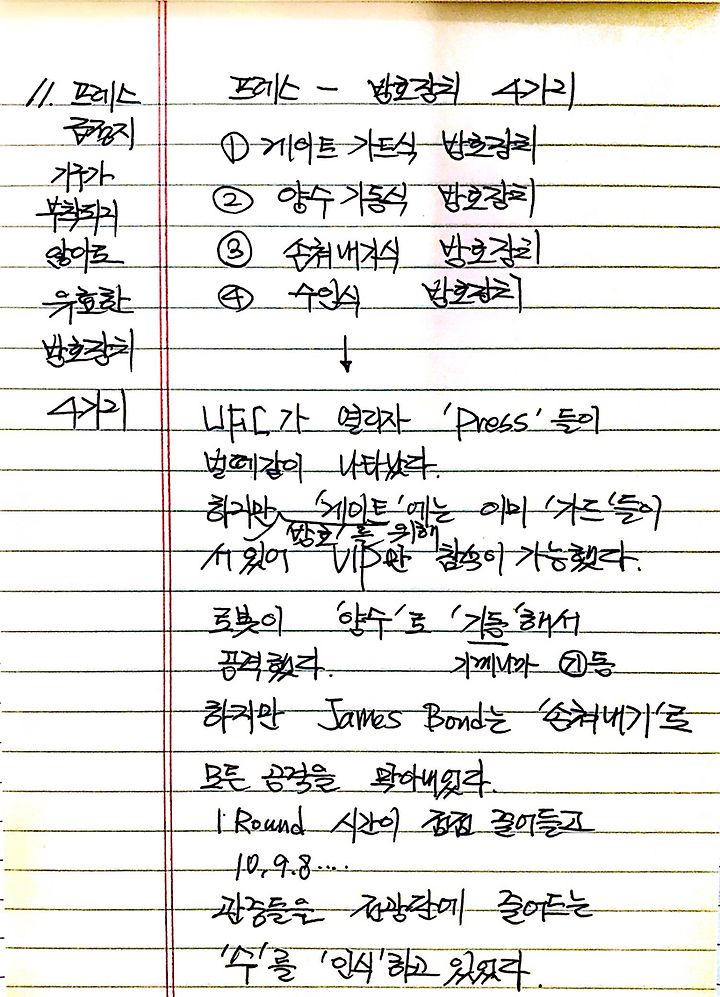 11. 프레스
급정지
기구가
부착되지
않아도
유효한
방호장치
4가지
프레스 - 방호장치 4가지
① 게이트 가드식 방호장치
② 양수 기동식 방호장치
③ 손쳐내기식 방호장치
④ 수인식 방호장치
↓
UFC가 열리자 'Press'들이
벌떼같이 나타났다.
하지만 '게이트'에는 이미 '가드'들이
'방호'를 위해
서있어 VIP만 참석이 가능했다.
로봇이 '양수'로 '기동'해서
공격했다. 기계니까 ㉠동
하지만 James Bond는 '손쳐내기'로
모든 공격을 막아내었다.
1 Round 시간이 점점 줄어들고
10, 9. 8 ....
관중들은 전광판에 줄어드는
'수'를 '인식'하고 있었다.